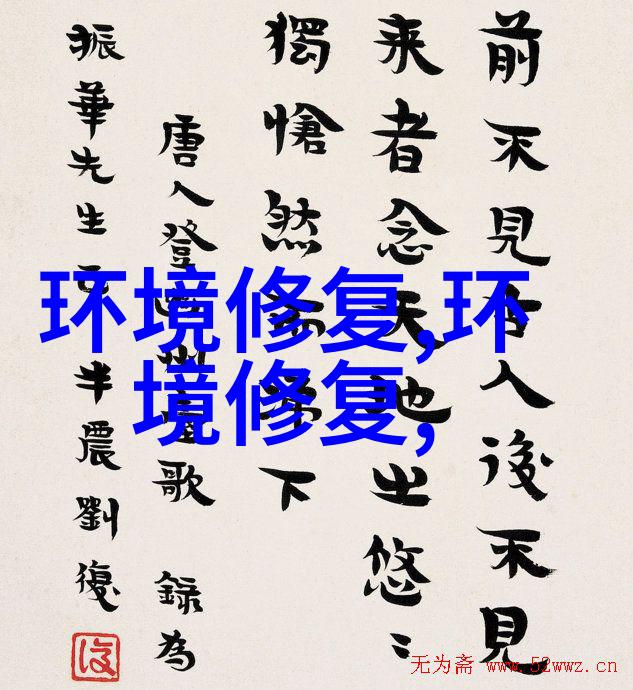 前不見古人後不見
来者念天地之悠〻
獨愴然而涕下
唐人登幽州臺歌 録為
振華先生正 半農劉復
环境修复,环
境修复,
无为斋 www.52wwz.cn